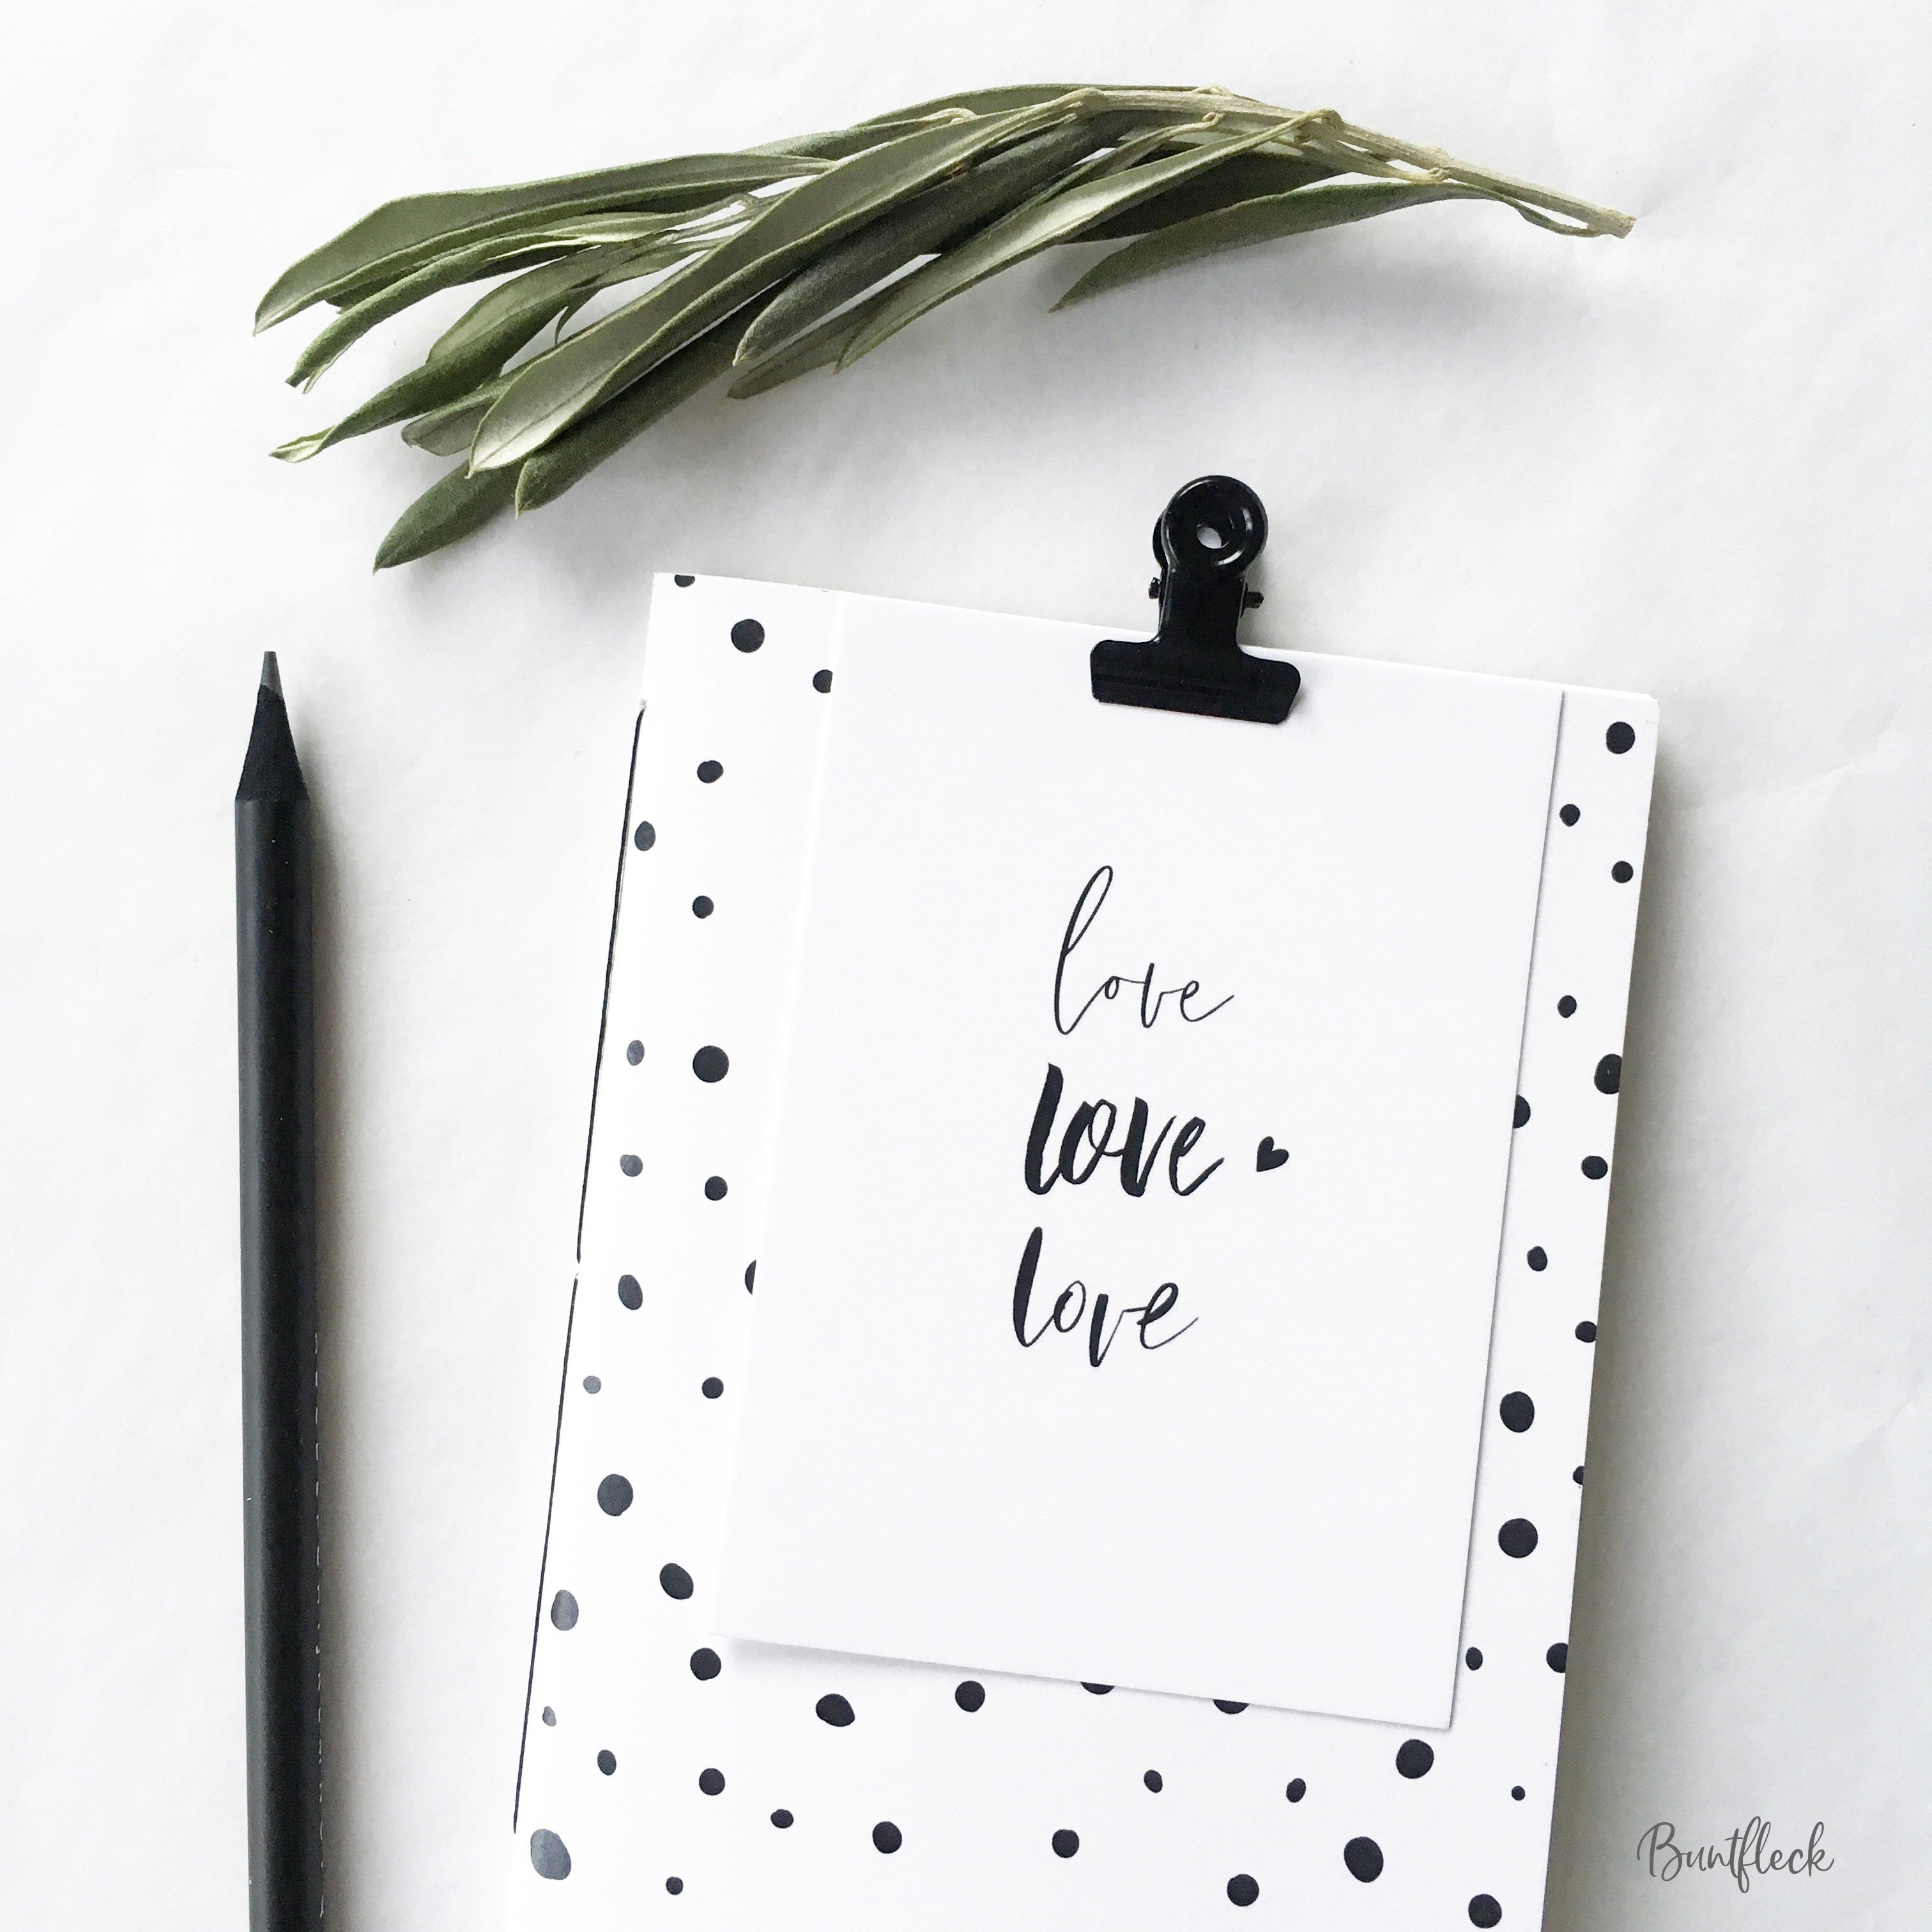 love
love
love
Buntfleck